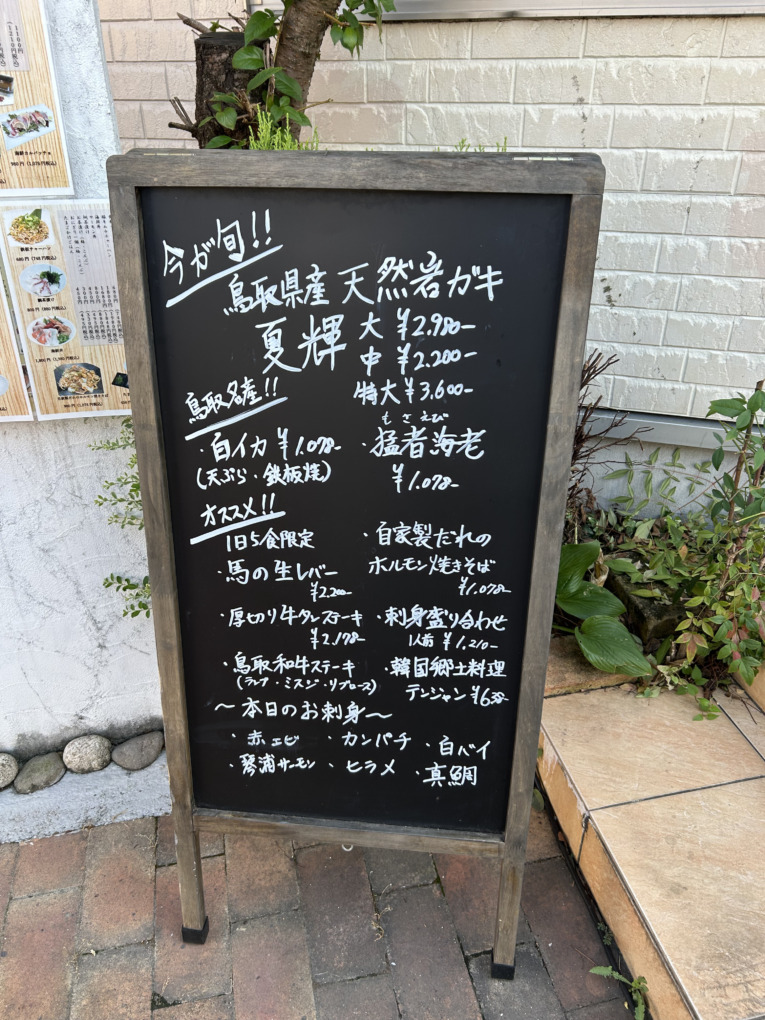 今が旬!!
鳥取県産 天然岩ガキ
夏輝 大 ¥2.980-
中 ¥2.200-
特大 ¥3.600-
鳥取名産!!
・白イカ ¥1.078-
(天ぷら・鉄板焼)
もさえび
・猛者海老
¥1.078-
オススメ!!
1日5食限定
・馬の生レバー
¥2.200-
・厚切り牛タンステーキ
¥2.178-
・鳥取和牛ステーキ
(ランプ・ミスジ・リブロース)
・自家製だれの
ホルモン焼きそば
¥1.078-
・刺身盛り合わせ
1人前 ¥1.210-
・韓国郷土料理
テンジャン
〜本日のお刺身〜
・赤エビ ・カンパチ ・白バイ
・琴浦サーモン ・ヒラメ ・真鯛